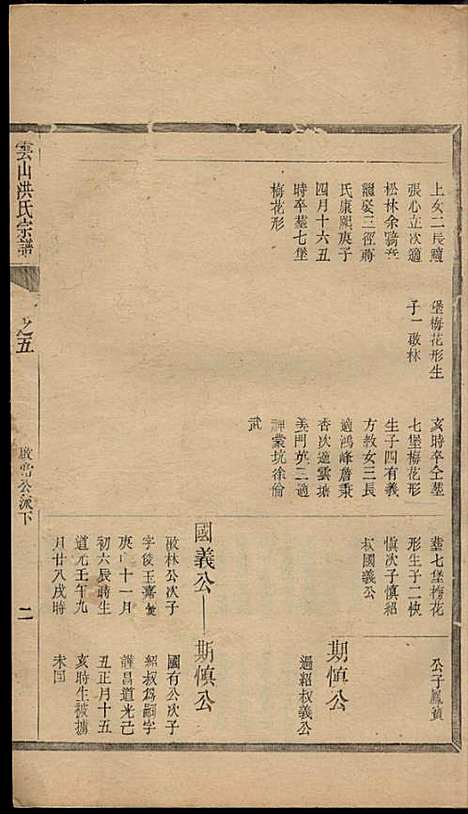 上女二長適
張心立次適
松林余
繼娶三徑蔣
氏康熙庚子
四月十六丑
時卒塟七堡
梅花形
堡梅花形生
子一啟林
亥時卒仝塟
七堡梅花形
生子四有義
方教女三長
適鴻峰詹秉
香次適雲塘
姜門英三適
坑徐倫
武
塟七堡梅花
形生子二快
慎次子慎紹
叔國義公
公子鳳
期慎公
過紹叔義公
國義公—斯慎公
啟林公次子
字後王嘉
庚 十一月
初六辰時生
道光壬午九
月廿八戌時
國有公次子
紹叔為嗣字
謹昌道光己
丑正月十五
亥時生被擄
未回
雲山洪氏宗譜
之五
公派下
二